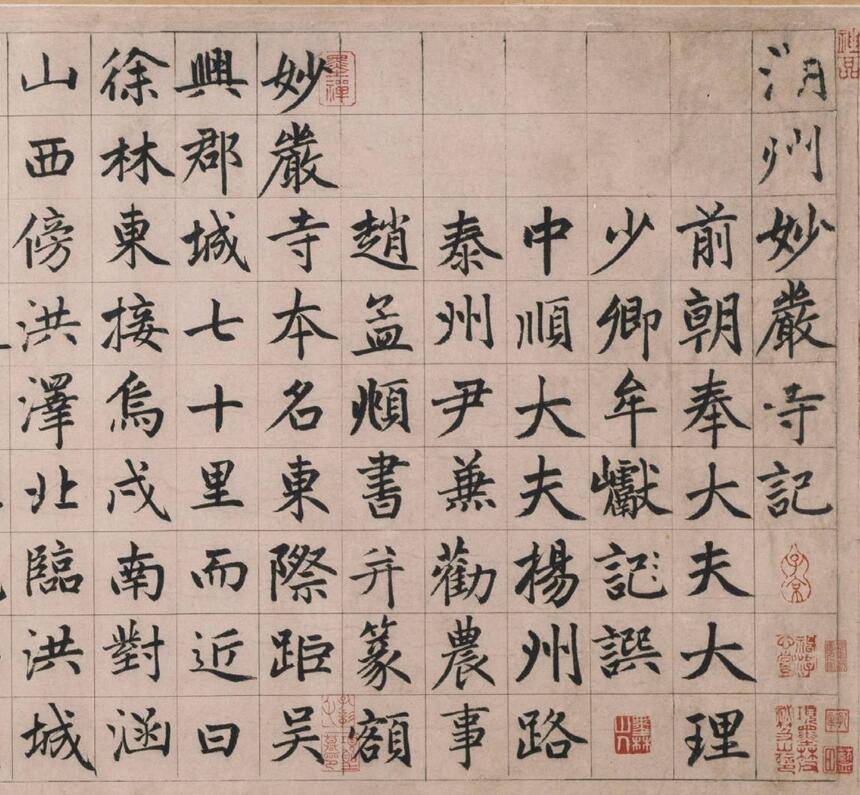 湖州妙嚴寺記
前朝奉大夫大理
少卿牟巘記譔
中順大夫楊州路
泰州尹兼勸農事
趙孟頫書并篆額
妙嚴寺本名東際距吳
興郡城七十里而近曰
徐林東接烏戍南對涵
山西傍洪澤北臨洪城
墨林山人
神品
子京
墨禪